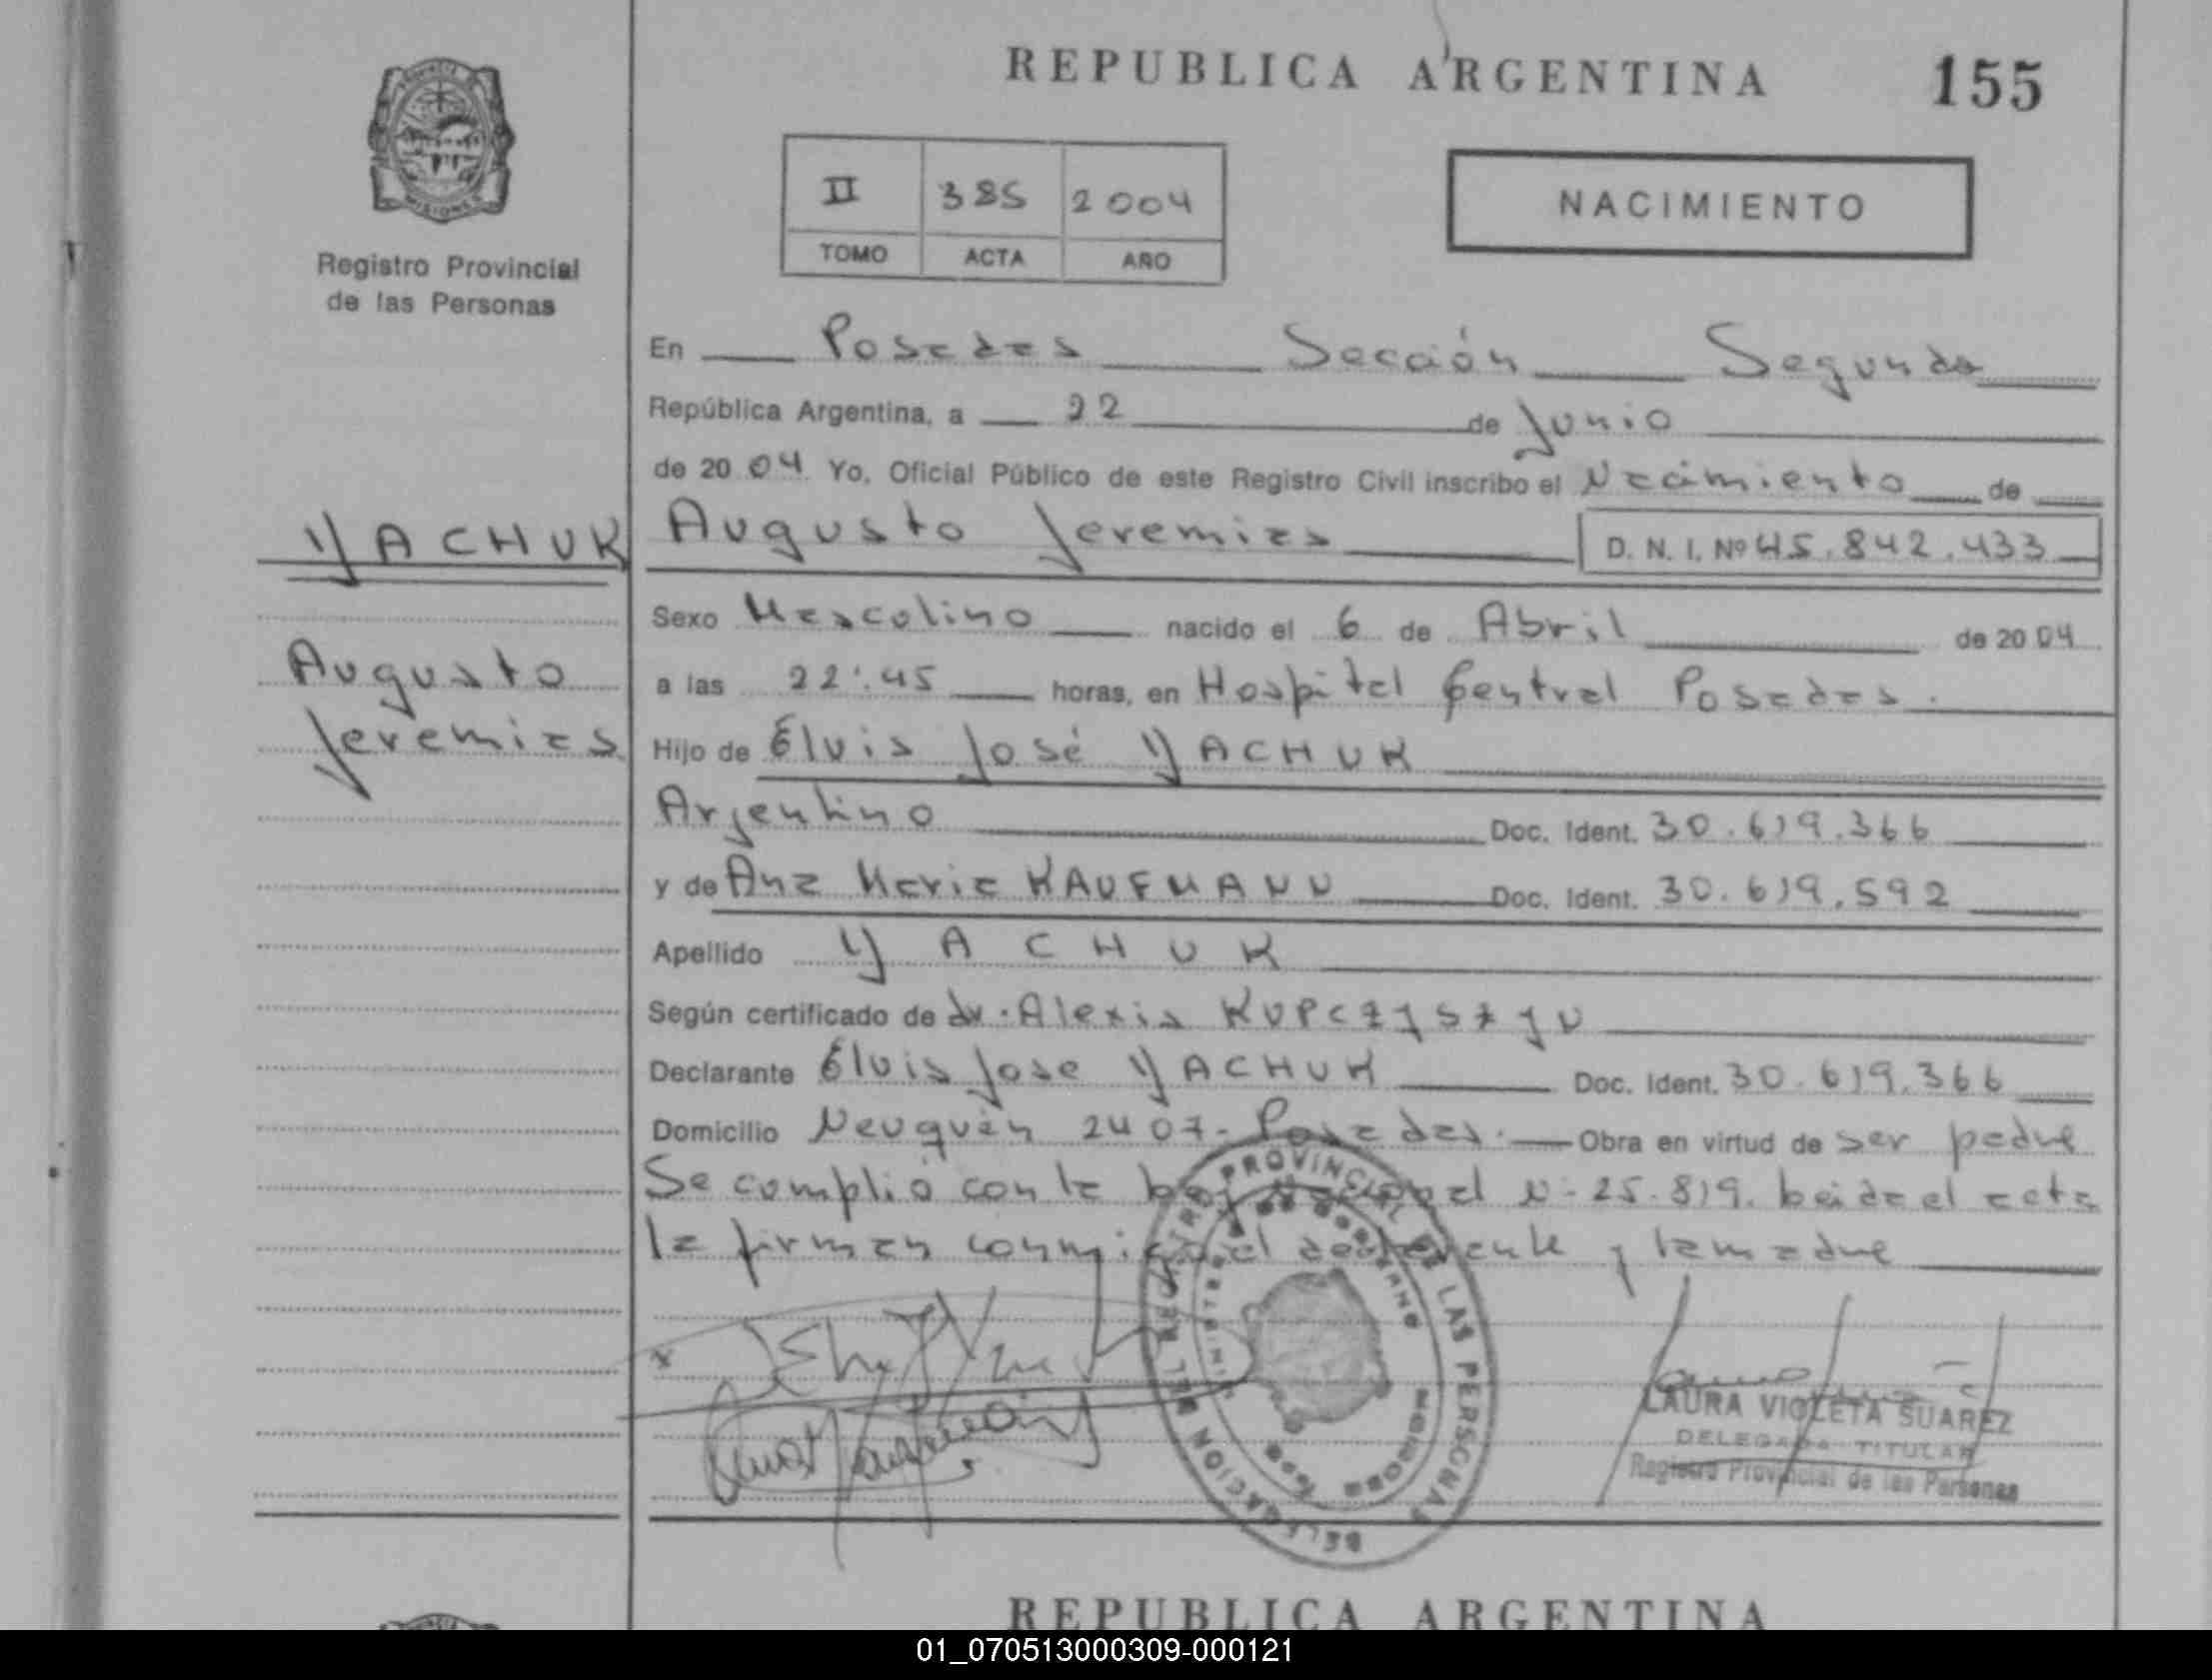 REPUBLICA ARGENTINA
155
MISIONES
Registro Provincial
de las Personas
II 385 2004
TOMO ACTA AÑO
NACIMIENTO
En Posadas Sección Segunda
República Argentina, a 22 de Junio
de 2004 Yo, Oficial Público de este Registro Civil inscribo el Nacimiento de
YACHUK
Augusto
Jeremias
Augusto Jeremias D. N. I. Nº 45.842.433
Sexo Masculino nacido el 6 de Abril de 2004
a las 22:45 horas, en Hospital Central Posadas.
Hijo de Elvis José YACHUK
Argentino Doc. Ident. 30.619.366
y de Ana Maria KAUFMANN Doc. Ident. 30.619.592
Apellido YACHUK
Según certificado de dr. Alexis KUPCZYSZYN
Declarante Elvis Jose YACHUK Doc. Ident. 30.619.366
Domicilio Neuquén 2407- Posadas. Obra en virtud de ser padre
Se cumplió con la Ley Nacional N- 25.819. Leida el acta
la firman conmigo el declarante y la madre
DELEGACION DEL REGISTRO PROVINCIAL DE LAS PERSONAS
LAURA VIOLETA SUAREZ
DELEGADA TITULAR
Registro Provincial de las Personas
REPUBLICA ARGENTINA
01_070513000309-000121